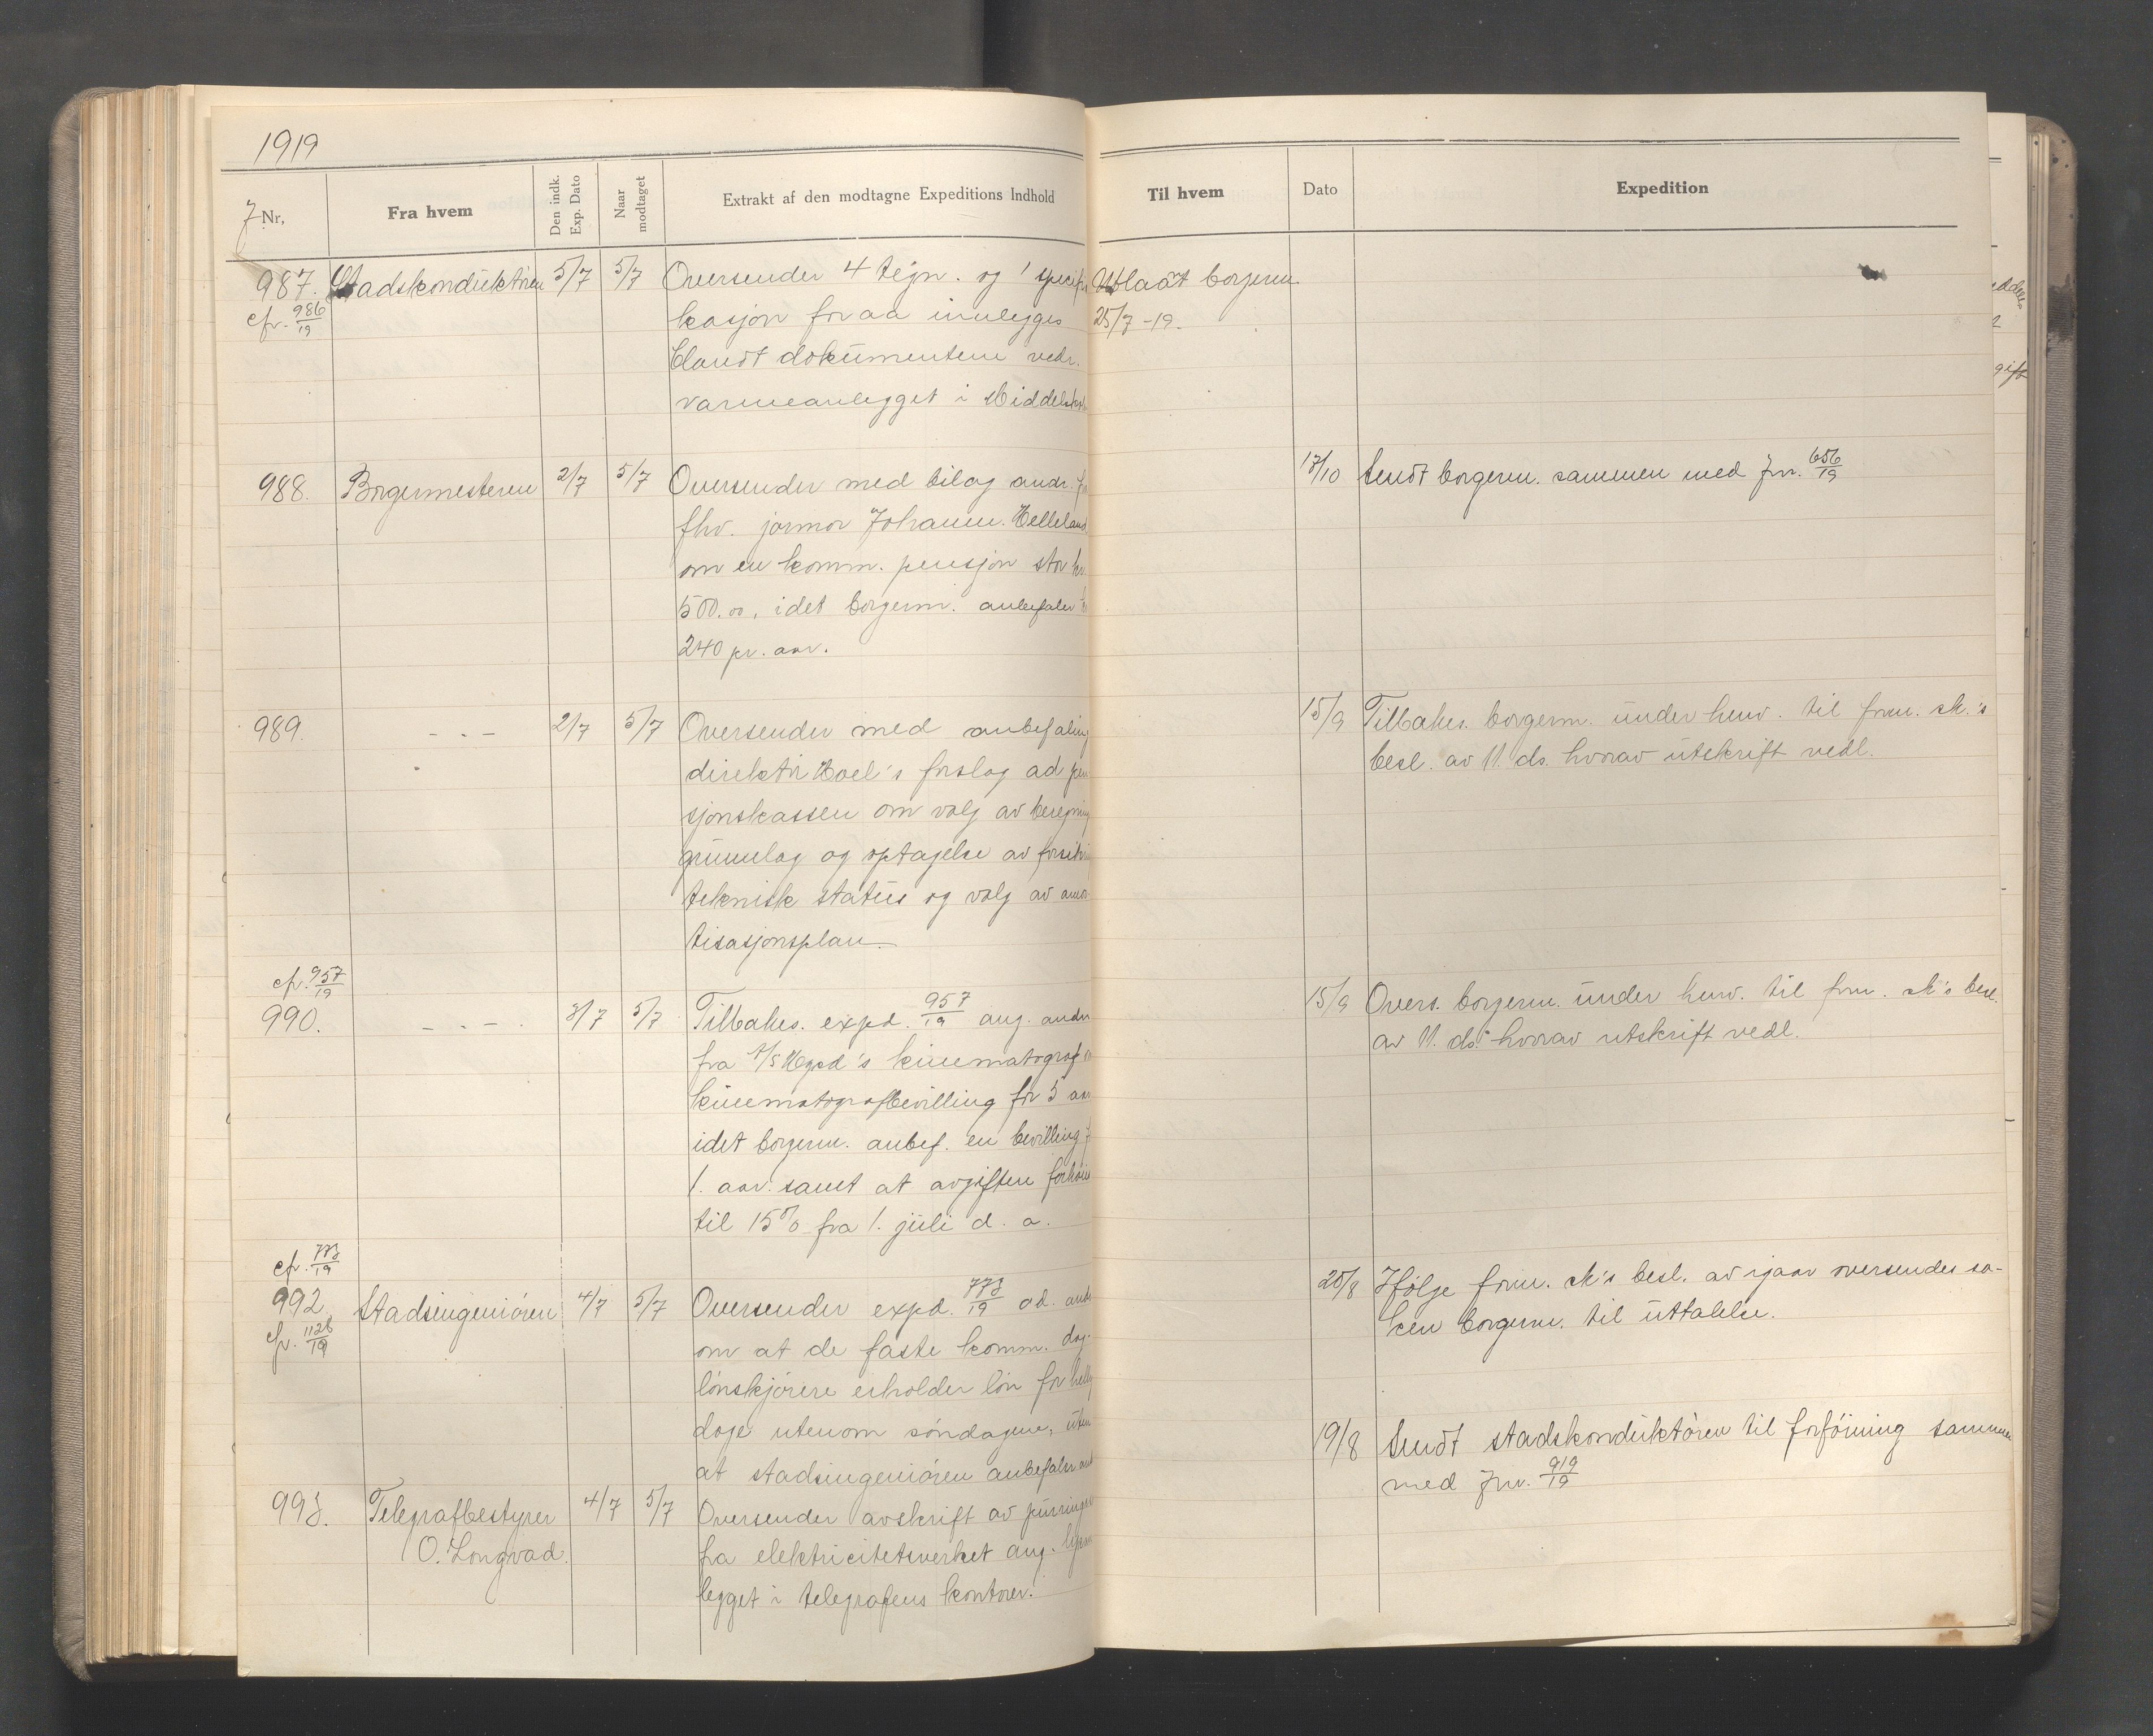 1919
J. Nr,
Fra hvem
Den indk. Exp. Dato
Naar modtaget
Extrakt af den modtagne Expeditions Indhold
Til hvem
Dato
Expedition
987. Stadskonduktören 5/7 5/7 Oversender 4 tegn. og 1 specifi
cfr. 986/19
kasjon for aa innlegges
blandt dokumentene vedr.
varmeanlegget i Middelsk
Utlaant borgerm.
25/7-19.
988. Borgermesteren 2/7 5/7 Oversender med bilag andr. fra
fhv. jormor Johanne Helleland
om en komm. pensjon stor kr.
500.00, idet borgerm. anbefaler
240 pr. aar.
17/10 Sendt borgerm. sammen med Jnr. 656/19
989. - - - 2/7 5/7 Oversender med anbefaling
direktör Hoel's forslag ad pen
sjonskassen om valg av beregning
grunnlag og optagelse av forsikr
teknisk status og valg av amor
tisasjonsplan.
15/9 Tilbakes. borgerm. under henv. til form. sk.'s
besl. av 11. ds. hvorav utskrift vedl.
cfr. 957/19
990. - - - 3/7 5/7 Tilbakes. expd. 957/19 ang. andr
fra A/S kinematograf
kinematografbevilling for 5 aar
idet borgerm. anbef. en bevilling f
1. aar samt at avgiften forhöie
til 15% fra 1. juli d. a.
15/9 Overs. borgerm. under henv. til form. sk's besl.
av 11. ds. hvorav utskrift vedl.
cfr. 773/19
992. Stadsingeniören 4/7 5/7 Oversender expd. 773/19 ad. andr
cfr. 1126/19
om at de faste komm. dag-
lönskjörere erholder lön for hellig
dage utenom söndagene, uten
at stadsingeniören anbefaler and
20/8 Ifölge form. sk's besl. av igaar oversendes sa-
ken borgerm. til uttalelse.
993. Telegrafbestyrer 4/7 5/7 Oversender avskrift av purringer
O. Longvad.
fra elektricitetsverket ang. lysan
legget i telegrafens kontorer.
19/8 Sendt stadskonduktören til forföining sammen
med Jnr. 919/19